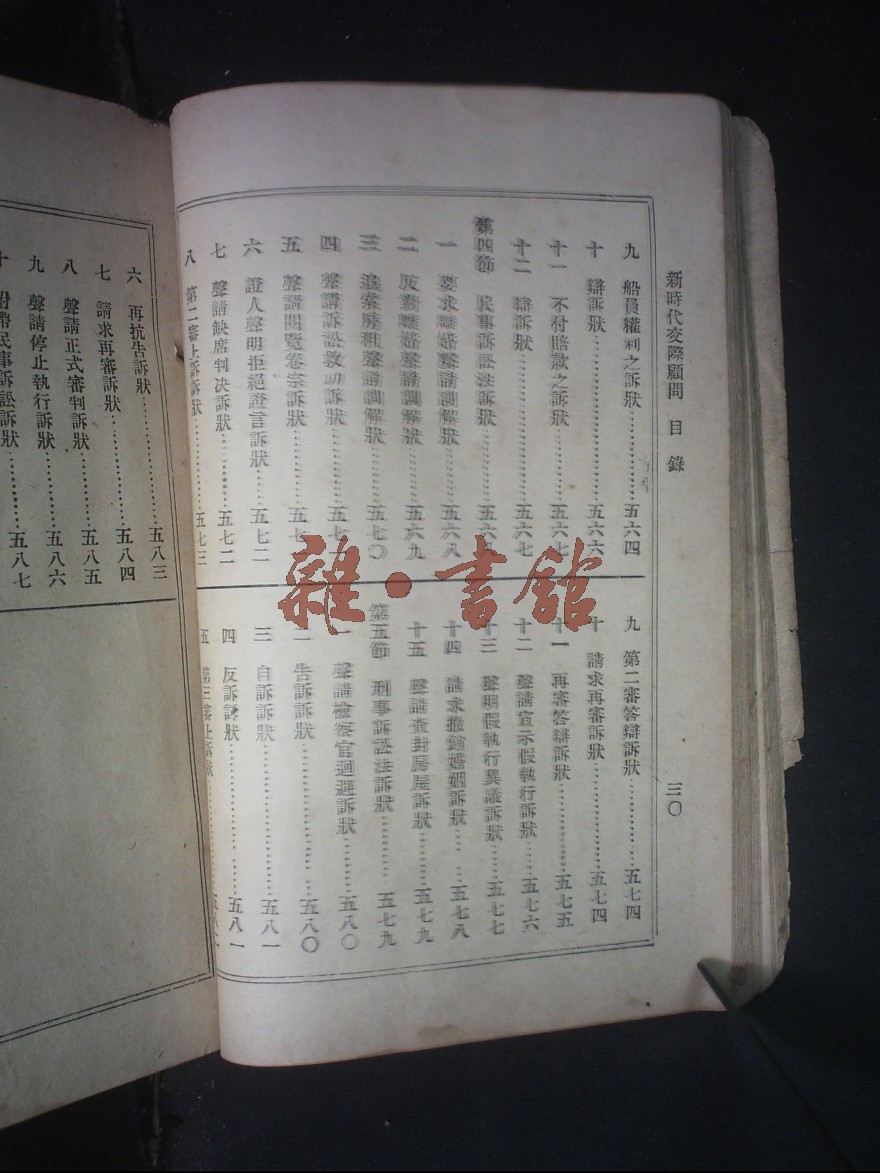 新時代交際顧問 目錄 三〇
九 船員權利之訴狀……五六四
十 辯訴狀……五六六
十一 不付賠款之訴狀……五六七
十二 辯訴狀……五六七
第四節 民事訴訟法訴狀……五六
一 要求離婚聲請調解狀……五六八
二 反對離婚聲請調解狀……五六九
三 追索房租聲請調解狀……五七〇
四 聲請訴訟救助訴狀……五七
五 聲請閱覽卷宗訴狀……五七
六 證人聲明拒絕證言訴狀……五七二
七 聲請缺席判決訴狀……五七二
八 第二審上訴訴狀……五七三
九 第二審答辯訴狀……五七四
十 請求再審訴狀……五七四
十一 再審答辯訴狀……五七五
十二 聲請宣示假執行訴狀……五七六
十三 聲明假執行異議訴狀……五七七
十四 請求撤銷婚姻訴狀……五七八
十五 聲請查封房屋訴狀……五七九
第五節 刑事訴訟法訴狀……五七九
一 聲請檢察官迴避訴狀……五八〇
二 告訴訴狀……五八〇
三 自訴訴狀……五八一
四 反訴訴狀……五八一
五 第三審上訴狀……五八二
六 再抗告訴狀……五八三
七 請求再審訴狀……五八四
八 聲請正式審判訴狀……五八五
九 聲請停止執行訴狀……五八六
十 附帶民事訴訟訴狀……五八七
雜·書館